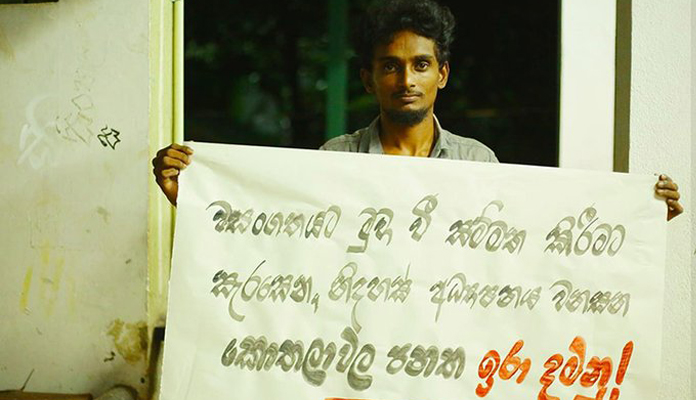 වසංගතයට මුවා වී සම්මත කිරීමට
සැරසෙන, නිදහස් අධ්‍යාපනය වනසන
කොතලාවල පනත ඉරා දමනු!